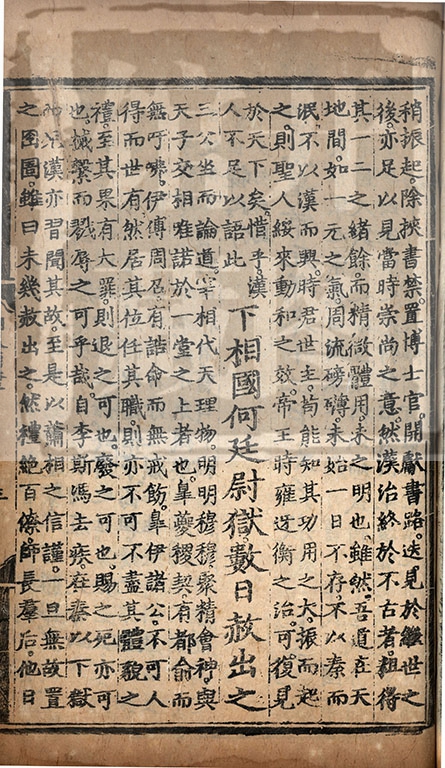 稍振起。除挾書禁。置博士官。開獻書路。迭見於繼世之
後。亦足以見當時崇尚之意。然漢治終於不古者。粗得
其一二之緒餘。而精微體用。未之明也。雖然。吾道在天
地間。如一元之氣。周流磅礴。未始一日不存。不以秦而
泯。不以漢而興。時君世主。苟能知其功用之大。振而起
之。則聖人綏來動和之效。帝王時雍迓衡之治。可復見
於天下矣。惜乎。漢
人不足以語此
下相國何廷尉獄。數日赦出之
三公坐而論道。宰相代天理物。明明穆穆聚精會神。與
天子交相唯諾於一堂之上者也。皐夔稷契。有都俞而
無吁咈。伊傅周召。有誥命而無戒飭。皐伊諸公。不可人
得而世有。然居其位任其職。則亦不可不盡其體貌之
禮。至其果有大罪。則退之可也。廢之可也。賜之死亦可
也。械繫而戮辱之可乎哉。自李斯馮去疾。在秦以下獄
而。漢亦習聞其故。至是以蕭相之信謹。一旦無故置
之囹圄。雖曰未幾赦出之。然禮絶百僚。師長羣后。他日